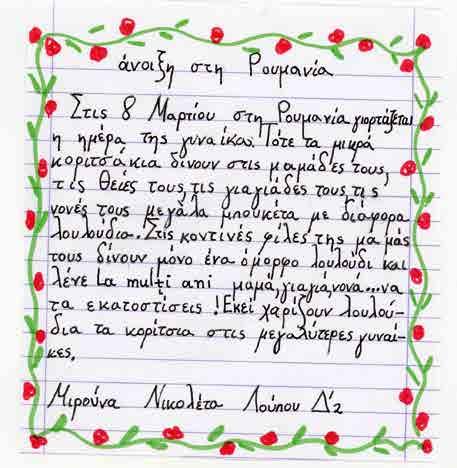 άνοιξη στη Ρουμανία
Στις 8 Μαρτίου στη Ρουμανία γιορτάζεται
η ημέρα της γυναίκας. Πότε τα μικρά
κοριτσάκια δίνουν στις μαμάδες τους,
τις θείες τους, τις γιαγιάδες τους, τις
νονές τους μεγάλα μπουκέτα με διάφορα
λουλούδια. Στις κοντινές φίλες της μαμάς
τους δίνουν μόνο ένα όμορφο λουλούδι και
λένε La multi ani μαμά, γιαγιά, νονα...να
τα εκατοστίσεις! Εκεί χαρίζουν λουλού-
δια τα κορίτσια στις μεγαλύτερες γυναί-
κες.
Μιρούνα Νικολέτα Λούπου Δ'2